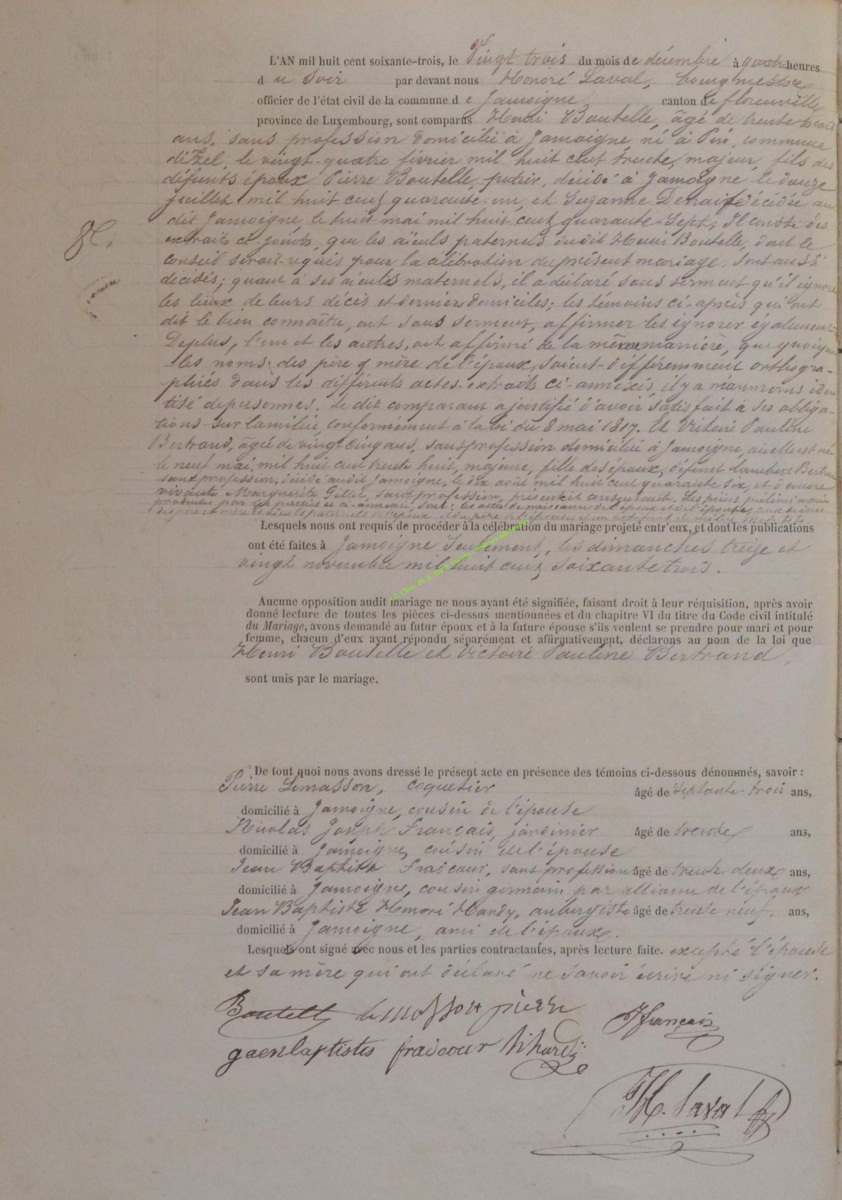 L'AN mil huit cent soixante-trois, le Vingt trois du mois de décembre à quatre heures
du Soir par devant nous Honoré Laval, bourgmestre
officier de l'état civil de la commune de Jamoigne, canton de florenville
province de Luxembourg, sont comparus Henri Boutelle, âgé de trente trois
ans, sans profession domicilié à Jamoigne, né à Pin, commune
d'Izel, le vingt-quatre février mil huit cent trente, majeur, fils des
défunts époux Pierre Boutelle, décédé à Jamoigne le douze
juillet mil huit cent quarante un, et Suzanne décédée au
dit Jamoigne, le huit mai mil huit cent quarante-sept; Il conste des
extraits ci joints, que les aïeuls paternels dudit Henri Boutelle, dont le
conseil serait requis pour la célébration du présent mariage sont aussi
décédés; quant à ses aïeuls maternels, il a déclaré sous serment qu'il ignore
les lieux de leurs décès et derniers domiciles; les témoins ci-après qui ont
dit le bien connaître, ont sous serment, affirmer les ignorer également
Deplus, l'un et les autres, ont affirmé de la même manière, que quoique
les noms des père & mère de l'époux, soient différemment orthogra-
phiés dans les différents actes extraits ci-annexés, il y a néanmoins iden
tité de personnes. Le dit comparant a justifié d'avoir satisfait à ses obliga-
tions sur la milice, conformément à la loi du 8 mai 1817. Et Victoire Pauline
Bertrand, âgée de vingt cinq ans, sans profession domiciliée à Jamoigne, où elle est née
le neuf mai, mil huit cent trente huit, majeure, fille des époux, défunt Lambert Bertrand
sans profession, décédé audit Jamoigne, le dix août mil huit cent quarante six, et d'encore
vivante Marguerite sans profession, présente
Lesquels nous ont requis de procéder à la célébration du mariage projeté entr'eux, et dont les publications
ont été faites à Jamoigne seulement, les dimanches treize et
vingt novembre mil huit cent soixante trois.
Aucune opposition audit mariage ne nous ayant été signifiée, faisant droit à leur réquisition, après avoir
donné lecture de toutes les pièces ci-dessus mentionnées et du chapitre VI du titre du Code civil intitulé
du Mariage, avons demandé au futur époux et à la future épouse s'ils veulent se prendre pour mari et pour
femme, chacun d'eux ayant répondu séparément et affirmativement, déclarons au nom de la loi que
Henri Boutelle et Victoire Pauline Bertrand,
sont unis par le mariage.
De tout quoi nous avons dressé le présent acte en présence des témoins ci-dessous dénommés, savoir :
Pierre Lemasson, coquetier âgé de septante trois ans,
domicilié à Jamoigne, cousin de l'épouse
Nicolas Joseph Français, jardinier âgé de trente ans,
domicilié à Jamoigne, cousin de l'épouse
Jean Baptiste Fraicour, sans profession âgé de trente deux ans,
domicilié à Jamoigne, cousin germain par alliance de l'époux
Jean Baptiste Honoré Hardy, aubergiste âgé de trente neuf ans,
domicilié à Jamoigne, ami de l'époux.
Lesquels ont signé avec nous et les parties contractantes, après lecture faite. excepté l'épouse
et sa mère qui ont déclaré ne savoir écrire ni signer.
Boutell lemasson pierre Jfrançais
fraicour
H. Laval